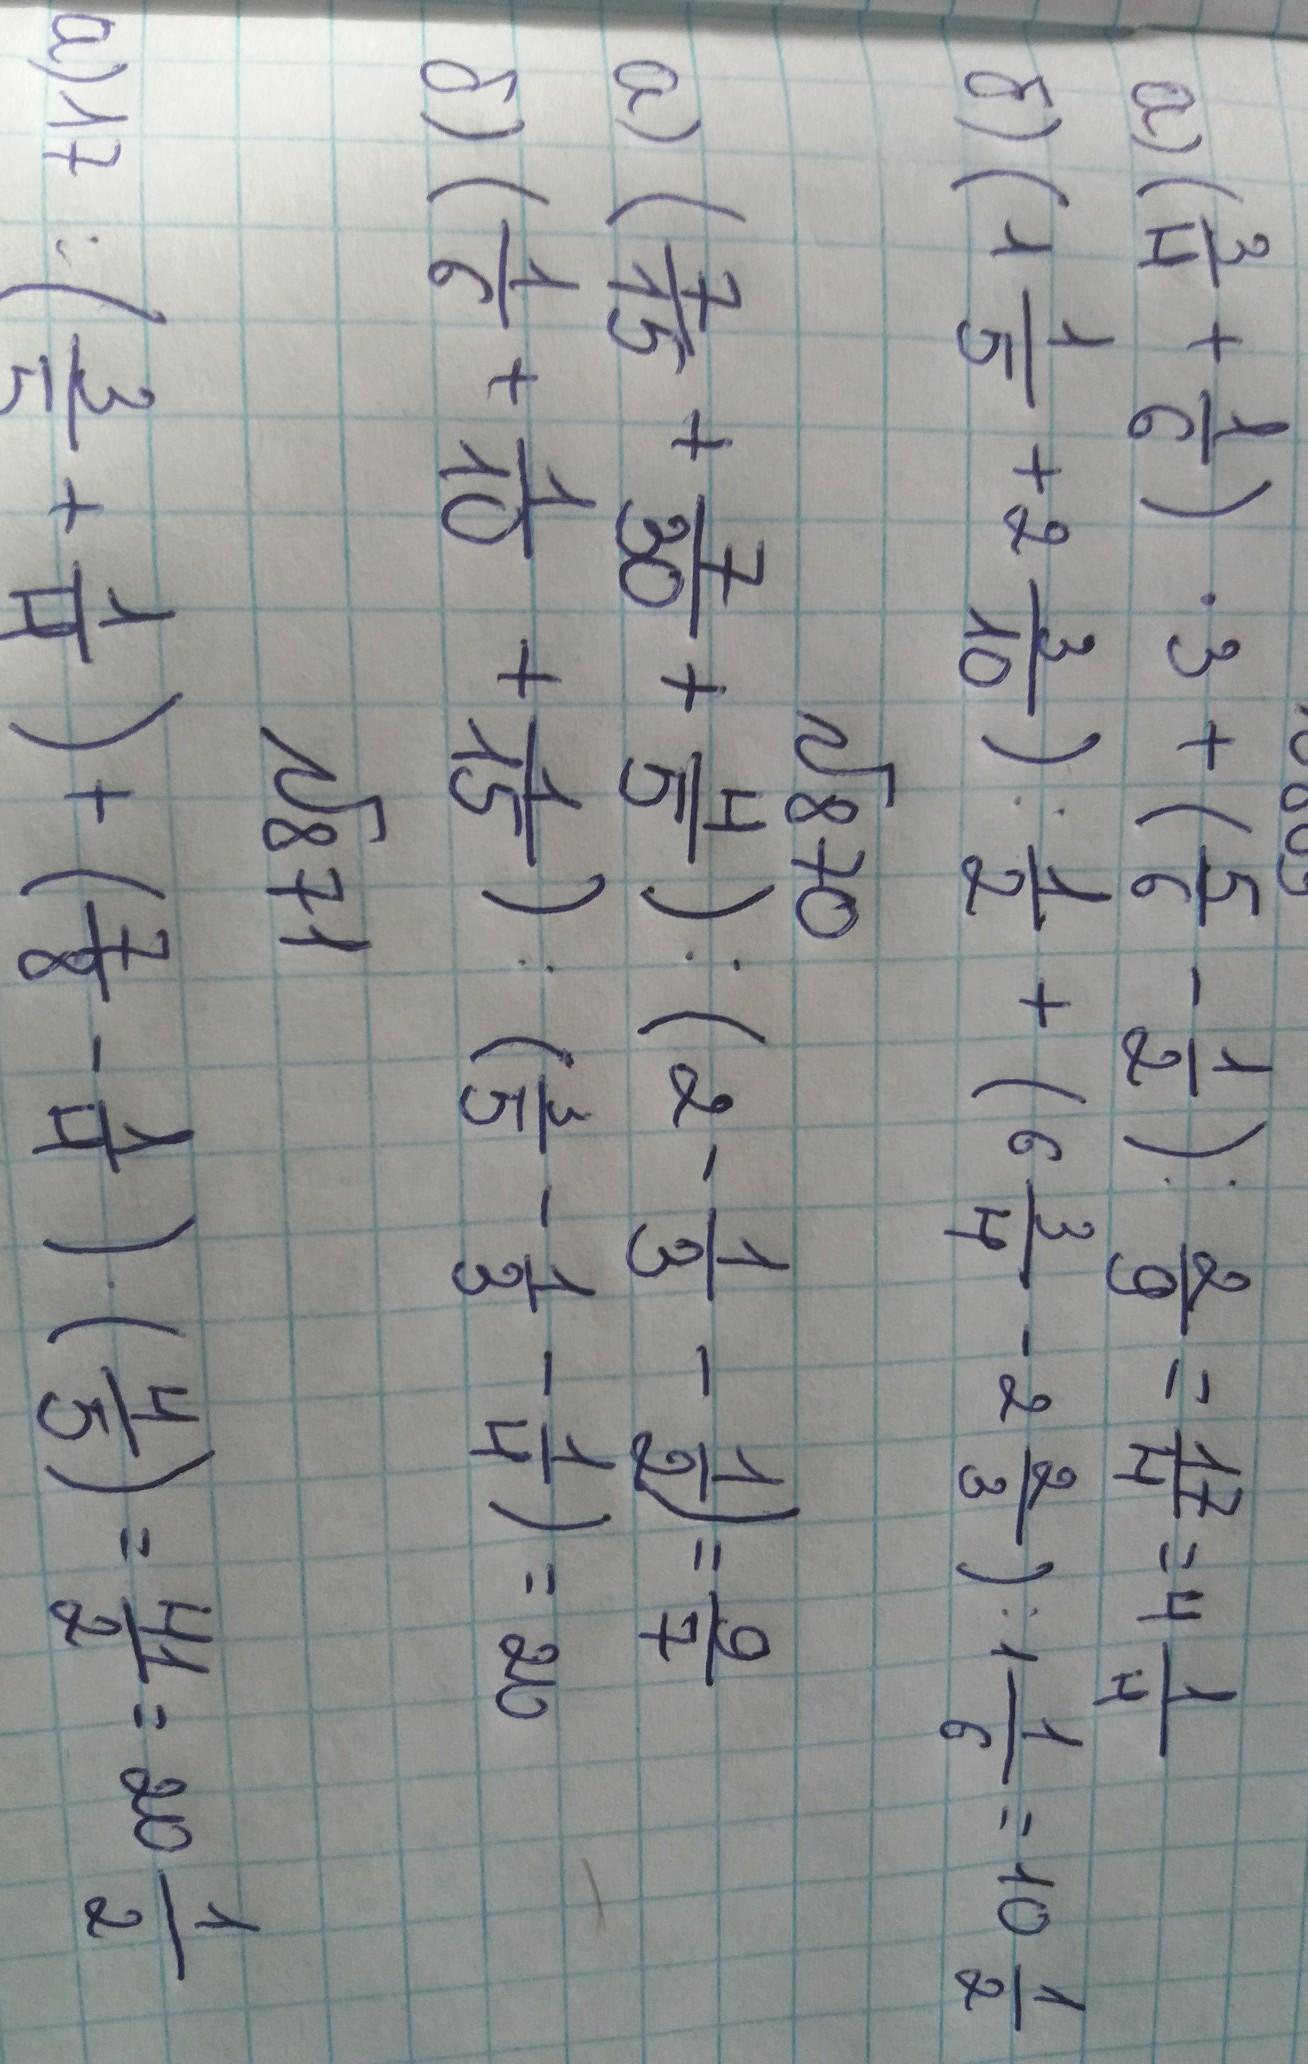 а) (3/4 + 1/6) · 3 + (5/6 - 1/2) : 2/9 = 17/4 = 4 1/4
б) (1 1/5 + 2 3/10) : 1/2 + (6 3/4 - 2 2/3) : 1 1/6 = 10 1/2
№870
а) (7/15 + 7/30 + 4/5) : (2 - 1/3 - 1/2) = 9/7
б) (1/6 + 1/10 + 1/15) : (3/5 - 1/3 - 1/4) = 20
№871
а) 17 : (3/5 + 1/4) + (7/8 - 1/4) · (4/5) = 41/2 = 20 1/2